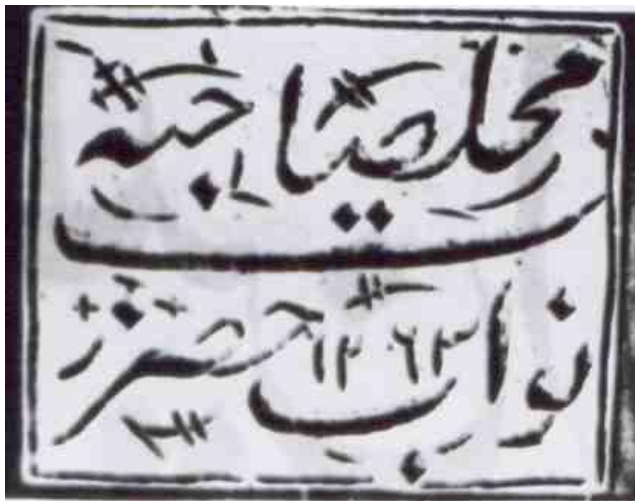 محل صاحبه
نواب حضرت ۱۲۶۳